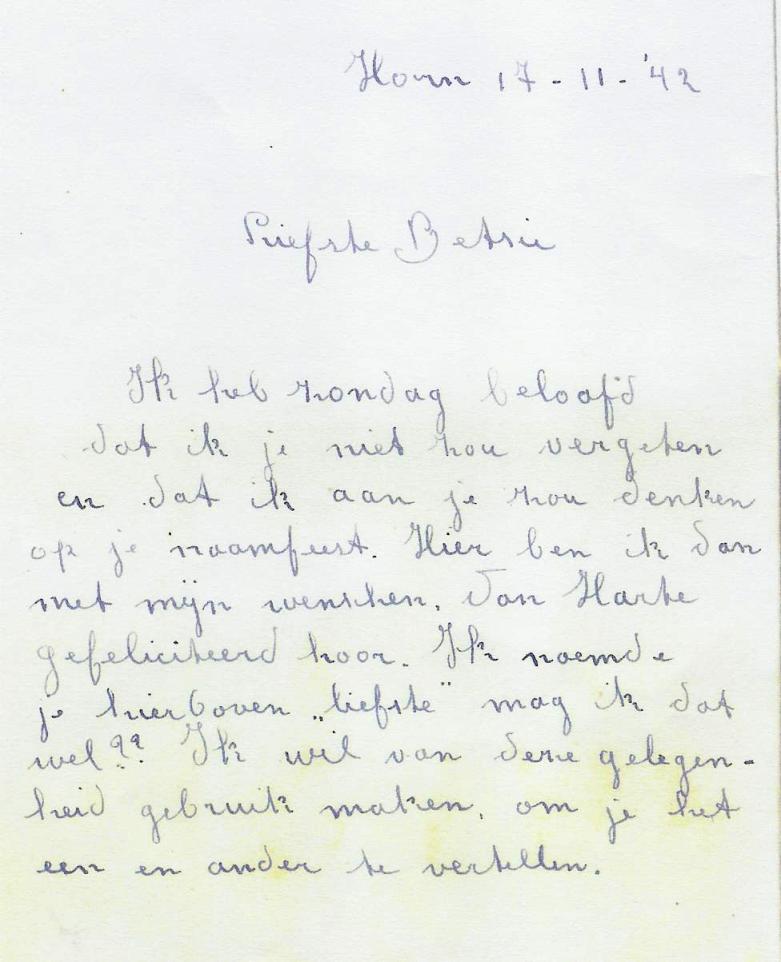 Horn 17-11-'42
Liefste Betsie
Ik heb zondag beloofd
dat ik je niet zou vergeten
en dat ik aan je zou denken
op je naamfeest. Hier ben ik dan
met mijn wenschen, Van Harte
gefeliciteerd hoor. Ik noemde
je hierboven „liefste" mag ik dat
wel?? Ik wil van deze gelegen-
heid gebruik maken, om je het
een en ander te vertellen.